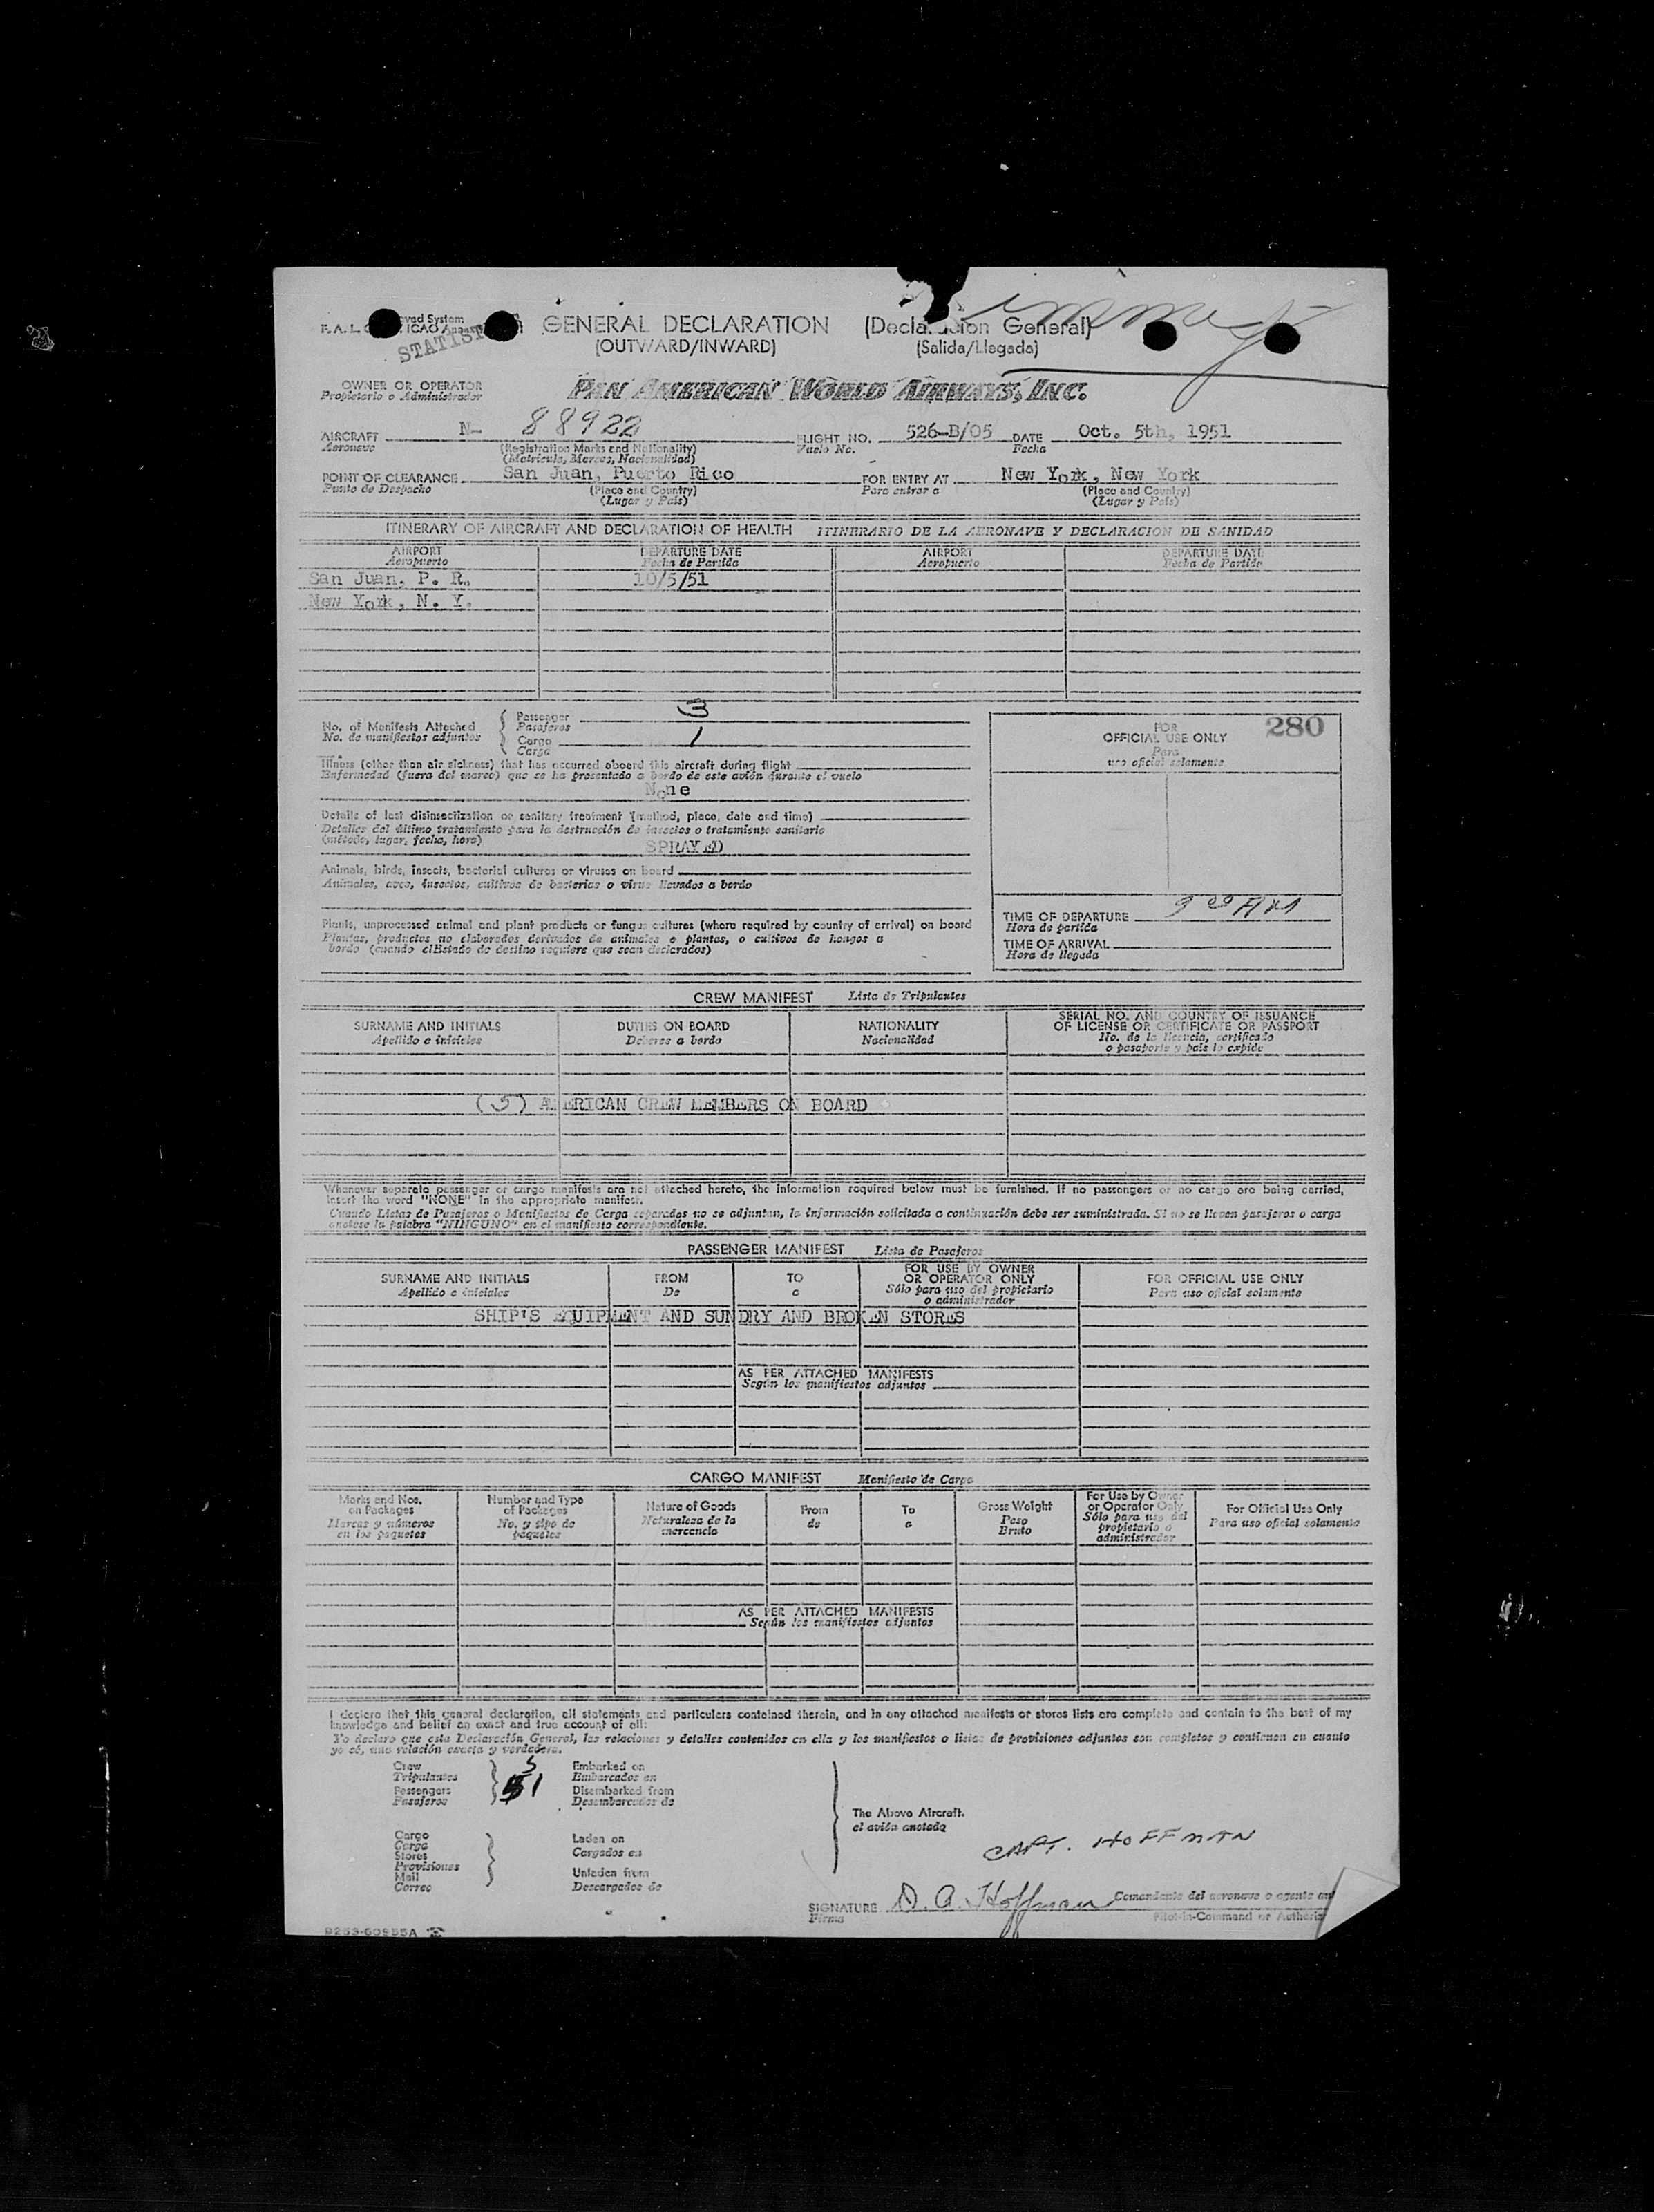 F.A.L.
STATIST
GENERAL DECLARATION (Declaración General)
(OUTWARD/INWARD) (Salida/Llegada)
OWNER OR OPERATOR PAN AMERICAN WORLD AIRWAYS, INC.
Propietario o Administrador
AIRCRAFT N- 88922 FLIGHT NO. 526-B/05 DATE Oct. 5th, 1951
Aeronave (Registration Marks and Nationality) Vuelo No. Fecha
(Matricula, Marcas, Nacionalidad)
POINT OF CLEARANCE San Juan, Puerto Rico FOR ENTRY AT New York, New York
Punto de Despacho (Place and Country) Para entrar a (Place and Country)
(Lugar y País) (Lugar y País)
ITINERARY OF AIRCRAFT AND DECLARATION OF HEALTH ITINERARIO DE LA AERONAVE Y DECLARACION DE SANIDAD
AIRPORT DEPARTURE DATE AIRPORT DEPARTURE DATE
Aeropuerto Fecha de Partida Aeropuerto Fecha de Partida
San Juan, P. R. 10/5/51
New York, N. Y.
No. of Manifests Attached Passenger 3
No. de manifiestos adjuntos Pasajeros
Cargo 1
Carga
Illness (other than air sickness) that has occurred aboard this aircraft during flight
Enfermedad (fuera del mareo) que se ha presentado a bordo de este avión durante el vuelo
None
Details of last disinsectization or sanitary treatment (method, place, date and time)
Detalles del último tratamiento para la destrucción de insectos o tratamiento sanitario
(método, lugar, fecha, hora) SPRAYED
Animals, birds, insects, bacterial cultures or viruses on board
Animales, aves, insectos, cultivos de bacterias o virus llevados a bordo
Plants, unprocessed animal and plant products or fungus cultures (where required by country of arrival) on board
Plantas, productos no elaborados derivados de animales o plantas, o cultivos de hongos a
bordo (cuando el Estado de destino requiere que sean declarados)
FOR 280
OFFICIAL USE ONLY
Para
uso oficial solamente
TIME OF DEPARTURE 9 00 AM
Hora de partida
TIME OF ARRIVAL
Hora de llegada
CREW MANIFEST Lista de Tripulantes
SURNAME AND INITIALS DUTIES ON BOARD NATIONALITY SERIAL NO. AND COUNTRY OF ISSUANCE
OF LICENSE OR CERTIFICATE OR PASSPORT
Apellido e iniciales Deberes a bordo Nacionalidad No. de la licencia, certificado
o pasaporte y país lo expide
(5) AMERICAN CREW MEMBERS ON BOARD
Whenever separate passenger or cargo manifests are not attached hereto, the information required below must be furnished. If no passengers or no cargo are being carried,
insert the word "NONE" in the appropriate manifest.
Cuando Listas de Pasajeros o Manifiestos de Carga separados no se adjuntan, la información solicitada a continuación debe ser suministrada. Si no se lleven pasajeros o carga
anótese la palabra "NINGUNO" en el manifiesto correspondiente.
PASSENGER MANIFEST Lista de Pasajeros
SURNAME AND INITIALS FROM TO FOR USE BY OWNER
OR OPERATOR ONLY FOR OFFICIAL USE ONLY
Apellido e iniciales De a Sólo para uso del propietario
o administrador Para uso oficial solamente
SHIP'S EQUIPMENT AND SUNDRY AND BROKEN STORES
AS PER ATTACHED MANIFESTS
Según los manifiestos adjuntos
CARGO MANIFEST Manifiesto de Carga
Marks and Nos.
on Packages
Marcas y números
en los paquetes
Number and Type
of Packages
No. y tipo de
paquetes
Nature of Goods
Naturaleza de la
mercancia
From
de
To
a
Gross Weight
Peso
Bruto
For Use by Owner
or Operator Only
Sólo para uso del
propietario o
administrador
For Official Use Only
Para uso oficial solamente
AS PER ATTACHED MANIFESTS
Según los manifiestos adjuntos
I declare that this general declaration, all statements and particulars contained therein, and in any attached manifests or stores lists are complete and contain to the best of my
knowledge and belief an exact and true account of all:
Yo declaro que esta Declaración General, las relaciones y detalles contenidos en ella y los manifiestos o listas de provisiones adjuntos son completos y contienen en cuanto
yo sé, una relación exacta y verdadera.
Crew 5 Embarked on
Tripulantes Embarcados en
Passengers 51 Disembarked from
Pasajeros Desembarcados de
The Above Aircraft.
el avión anotado
Cargo Laden on
Carga Cargados en
Stores
Provisiones
Mail Unladen from
Correo Descargados de
CAPT. HOFFMAN
SIGNATURE D. A. Hoffman Comandante del aeronave o agente au
Firma Pilot-in-Command or Authoriz